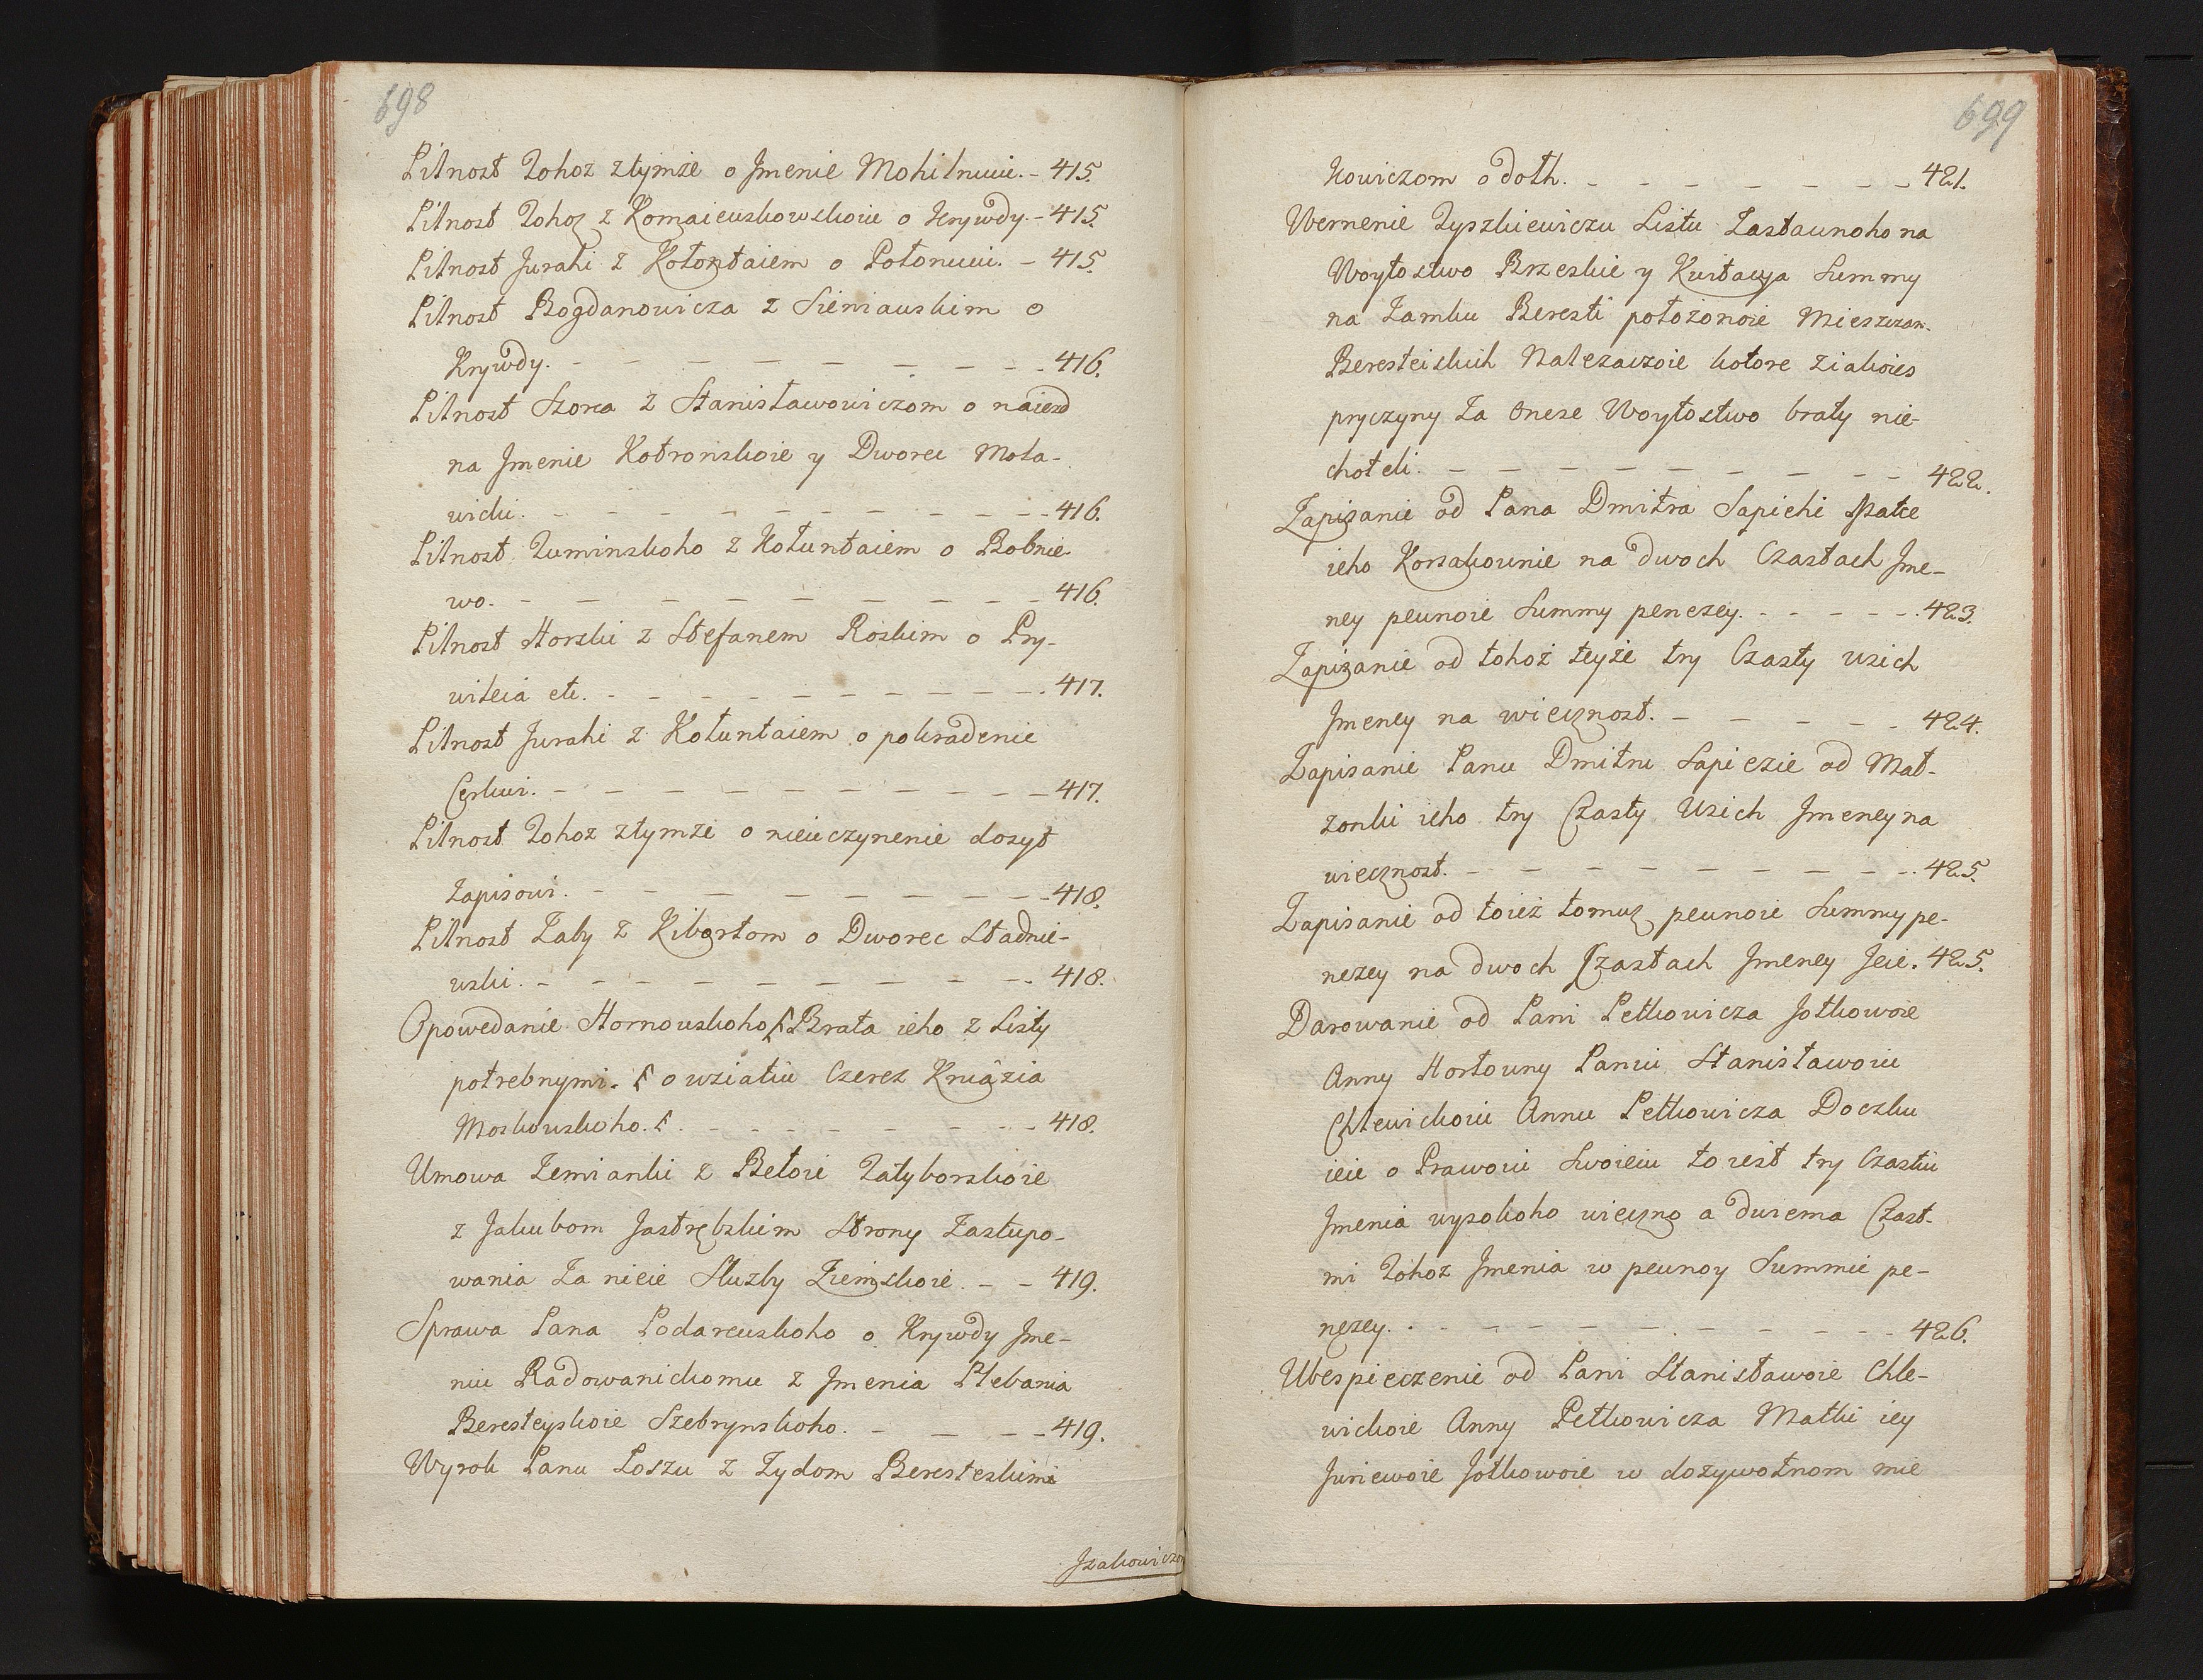 698
Pilnost Tohoz ztymże o Jmenie Mohilnuiu. - 415.
Pilnost Tohoz z Komaieuskowskoiu o Krywdy. - 415.
Pilnost Jurahi z Kołontaiem o Połonuiu. - 415.
Pilnost Bogdanowicza z Sieniauskim o
Krywdy. - - - - - - - - 416.
Pilnost Szorca z Stanisławowiczom o naiezd
na Jmenie Kotronskoie y Dworec Mota-
wicku. - - - - - - - - 416.
Pilnost Tuminskoho z Kołuntaiem o Bobnie
wo. - - - - - - - - 416.
Pilnost Horski z Stefanem Roskim o Pry-
wileia etc. - - - - - - - - 417.
Pilnost Jurahi z Kołuntaiem o pokradenie
Cerkwi. - - - - - - - - 417.
Pilnost Tohoz ztymże o nieuczynenie dosyt
Zapisowi. - - - - - - - - 418.
Pilnost Zaby z Kibortom o Dworec Stadnie-
uski. - - - - - - - - 418.
Opowedanie Hornouskoho Brata ieho z Listy
potrebnymi. o wziatiu Czerez Kniazia
Moskouskoho. - - - - - - - - 418.
Umowa Zemianki z Bełoie Zatyborskoie
z Jakubom Jastrębskim Strony Zastupo-
wania Za nieie Służby Ziemskoie. - - 419.
Sprawa Pana Podareuskoho o Krywdy Jme-
niu Radowanickomu z Jmenia Plebania
Beresteyskoie Szebrynskoho. - - - - 419.
Wyrok Panu Poszu z Zydom Beresteskimi
Jzakowiczom
699
Kowiczom o dołh. - - - - - - - 421.
Wernenie Tyszkiewiczu Listu Zastaunoho na
Woytostwo Brzeskie y Kwitacya Summy
na Zamku Beresti położonoie Mieszczan.
Beresteiskich Nalezaczoie kotore ziakoies
pryczyny Za Onese Woytostwo braty nie-
choteli. - - - - - - - - 422.
Zapisanie od Pana Dmitra Sapiehi Matce
ieho Korsakownie na dwoch Czastach Jme-
ney peunoie Summy penezey. - - - - - 423.
Zapisanie od tohoż teyże try Czasty usich
Jmeney na wiecznost. - - - - - 424.
Zapisanie Panu Dmitru Sapiezie od Mał-
zonki ieho try Czasty Usich Jmeney na
wiecznost. - - - - - - - - 425.
Zapisanie od toież tomuz peunoie Summy pe-
nezey na dwoch Czastach Jmeney Jeie. 425.
Darowanie od Pani Petkowicza Jotkowoie
Anny Hortouny Paniu Stanisławoiu
Chlewickoiu Annu Petkowicza Doczku
ieie o Prawoiu Swoieiu to iest try Czastiu
Jmenia wysokoho wieczno a dwiema Czast-
mi Tohoz Jmenia w peunoy Summie pe-
nezey. - - - - - - - - 426.
Ubespieczenie od Pani Stanisławoie Chle-
wickoie Anny Petkowicza Matki iey
Juriewoie Jotkowoie w dozywotnom mie